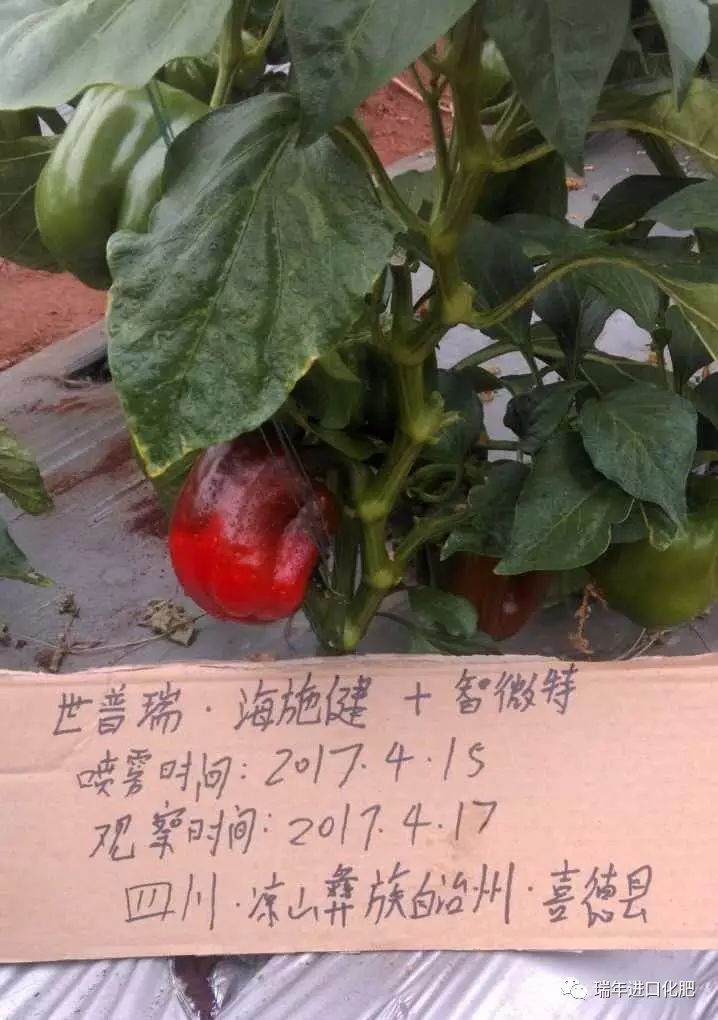 世普瑞·海施健+智微特
喷雾时间:2017.4.15
观察时间:2017.4.17
四川·凉山彝族自治州·喜德县
瑞年进口化肥